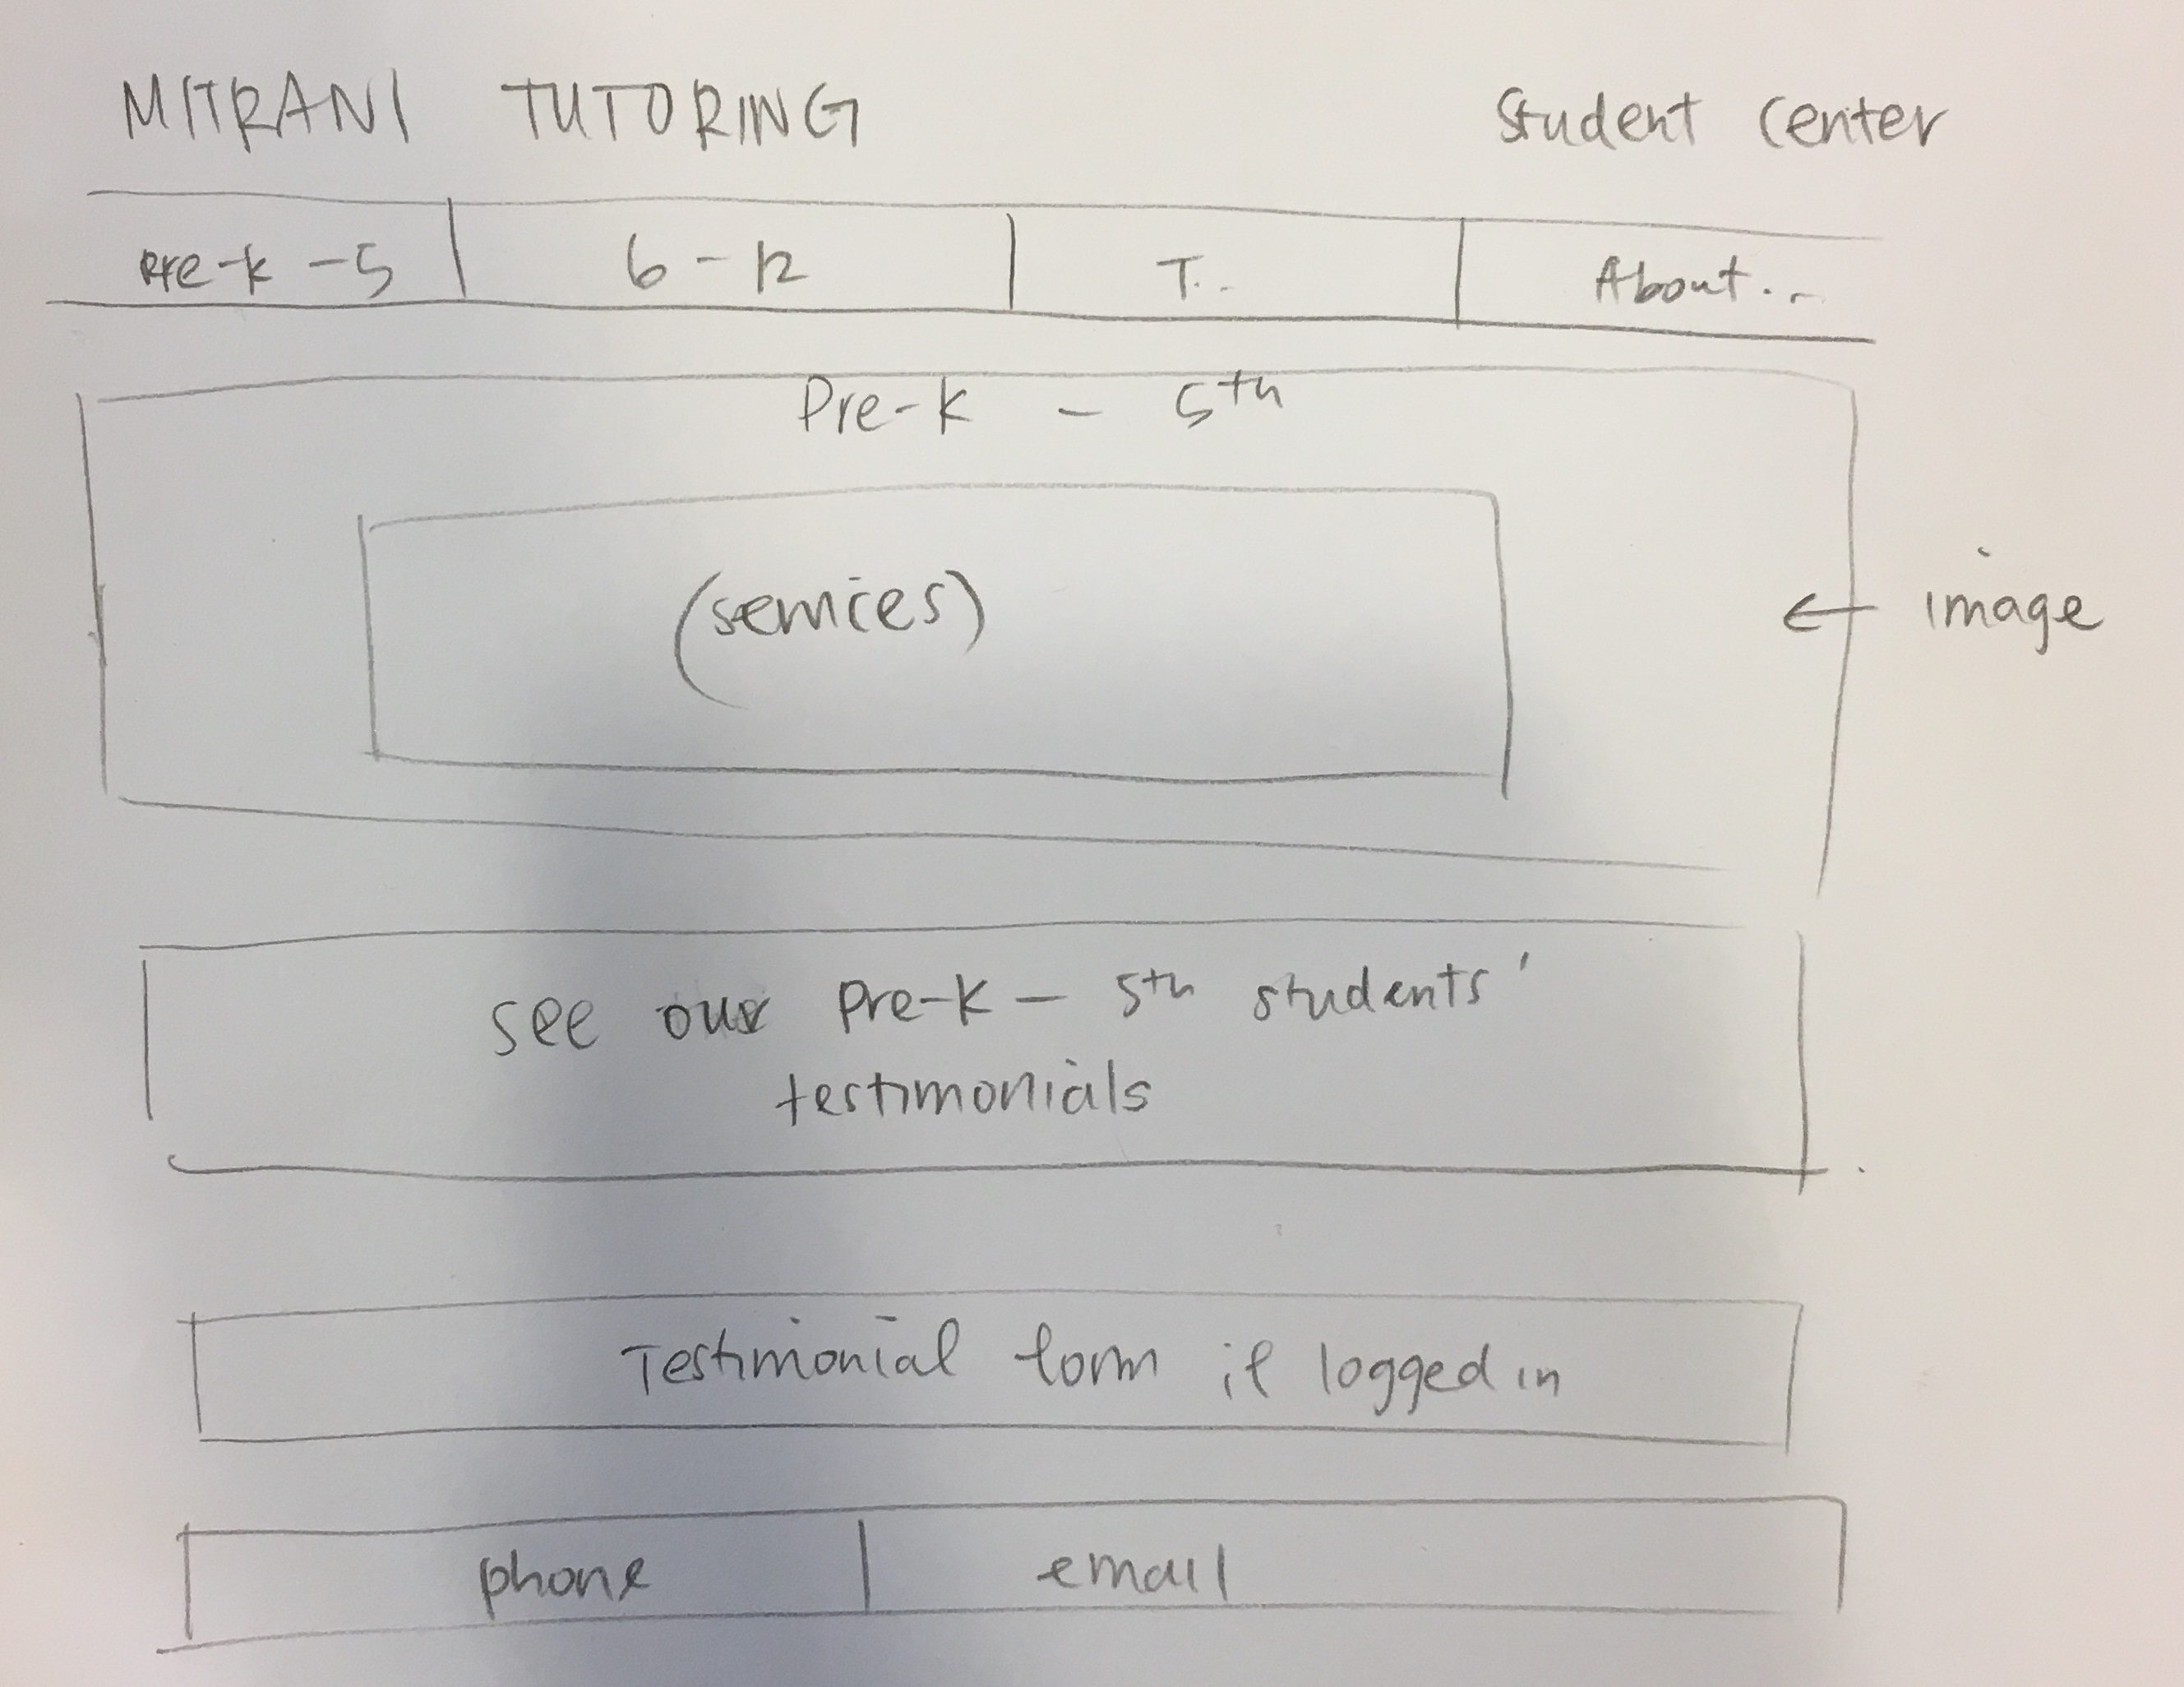 MITRANI TUTORING Student Center
Pre-k - 5 6 - 12 T.. About...
Pre-k - 5th
(services)
← image
see our Pre-K - 5th students'
testimonials
Testimonial form if logged in
phone email